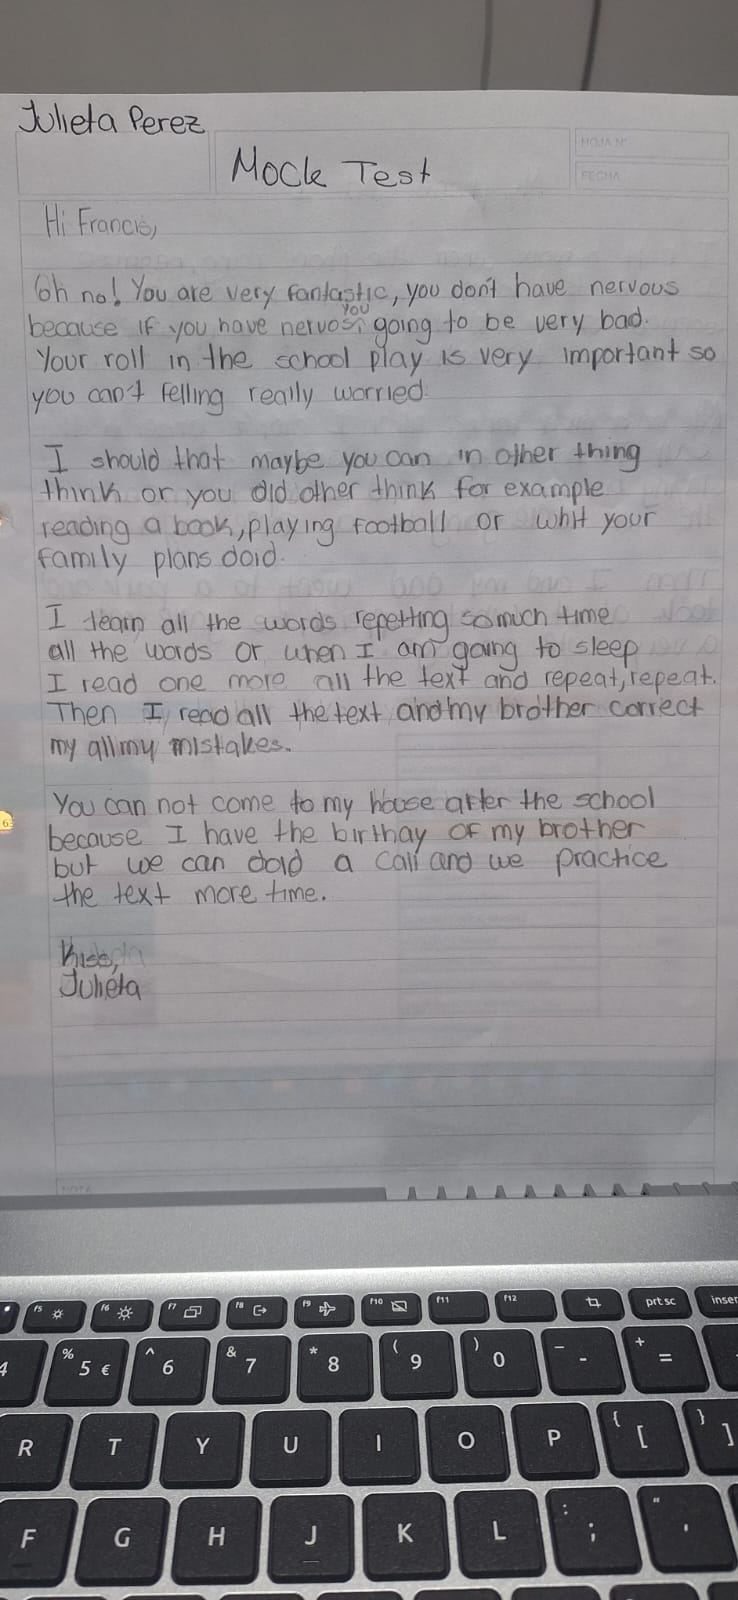 Julieta Perez
HOJA N°
Mock Test
FECHA
Hi Francis,
Oh no! You are very fantastic, you don't have nervous
because if you have nervos you going to be very bad.
Your roll in the school play is very important so
you can't felling really worried.
I should that maybe you can in other thing
think or you did other think for example
reading a book, playing football or whit your
family plans doid.
I learn all the words repetting so much time
all the words or when I am going to sleep
I read one more all the text and repeat, repeat.
Then I read all the text and my brother correct
my all my mistakes.
You can not come to my house after the school
because I have the birthay of my brother
but we can doid a call and we practice
the text more time.
Julieta
NOTA
f5
f6
f7
f8
f9
f10
f11
f12
prt sc
inser
4 % 5 € ^ 6 & 7 * 8 ( 9 ) 0 _ - + =
R T Y U I O P { [ } ]
F G H J K L : ; " '